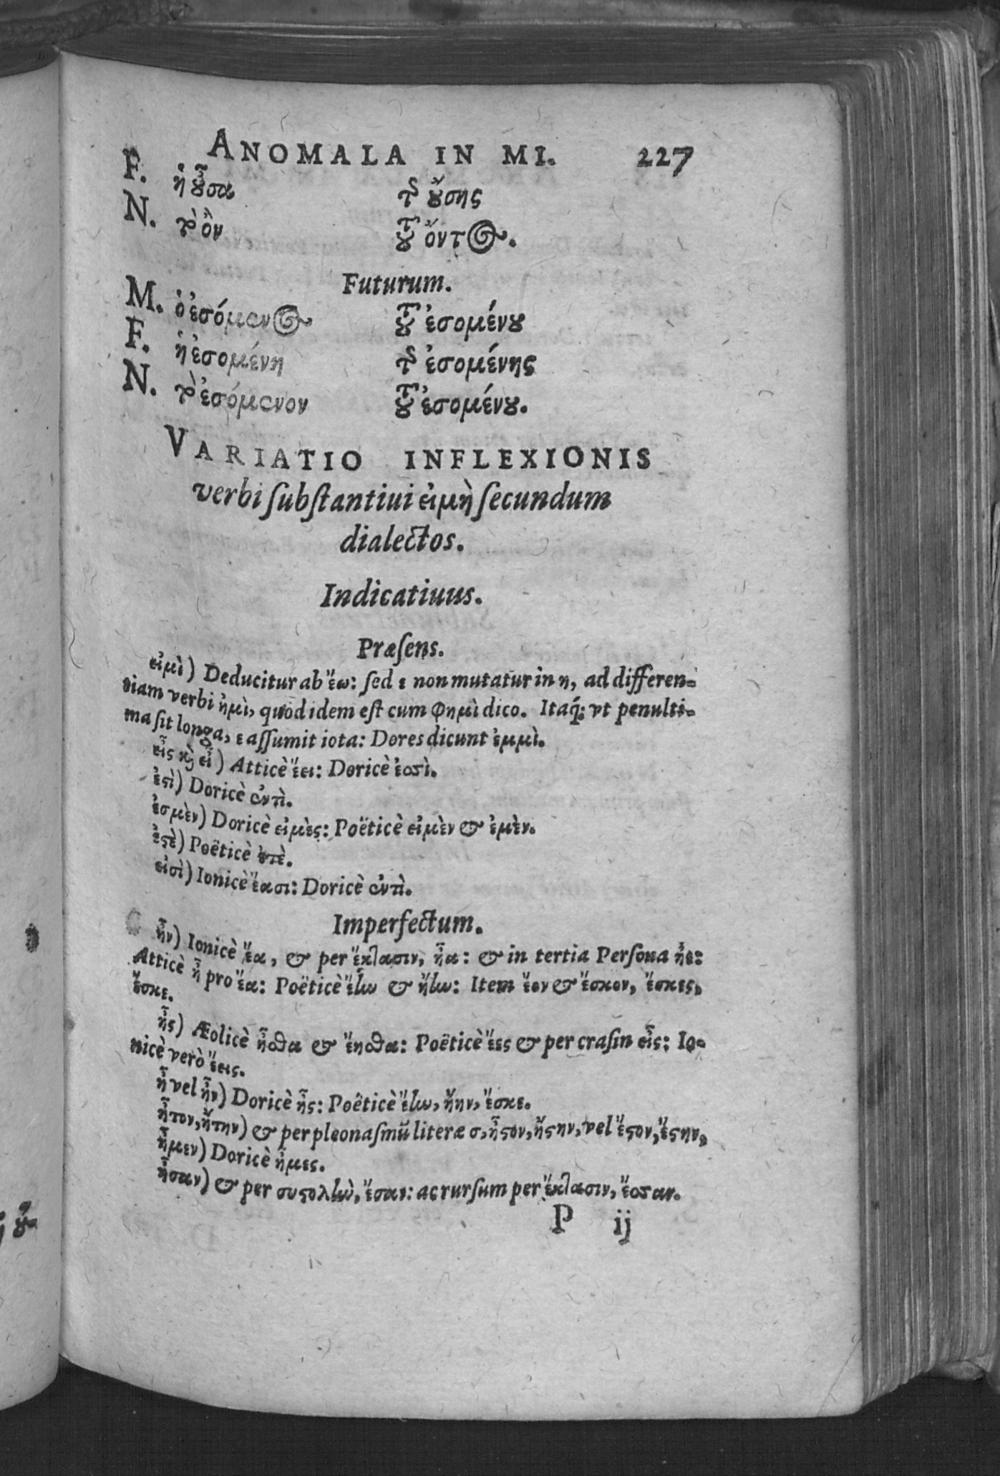 ANOMALA IN MI. 227
F. ἡ οὖσα τῆς οὔσης
N. τὸ ὂν τοῦ ὄντος.
Futurum.
M. ὁ ἐσόμενος τοῦ ἐσομένου
F. ἡ ἐσομένη τῆς ἐσομένης
N. τὸ ἐσόμενον τοῦ ἐσομένου.
VARIATIO INFLEXIONIS
verbi ſubſtantiui εἰμὶ ſecundum
dialectos.
Indicatiuus.
Præſens.
εἰμὶ) Deducitur ab ἔω: ſed ε non mutatur in η, ad differen-
tiam verbi ἠμὶ, quod idem eſt cum φημὶ dico. Itaq; vt penulti-
ma ſit longa, ε aſſumit iota: Dores dicunt ἐμμὶ.
εἶς καὶ εἶ) Atticè ἔει: Doricè ἐσσὶ.
ἐστὶ) Doricè ἐντὶ.
ἐσμὲν) Doricè εἰμὲς: Poëticè εἰμὲν & ἐμὲν.
ἐστὲ) Poëticè
εἰσὶ) Ionicè ἔασι: Doricè ἐντὶ.
Imperfectum.
ἦν) Ionicè ἔα, & per ἔκτασιν, ἦα: & in tertia Perſona ἦε:
Atticè ἦ pro ἔα: Poëticè ἔην & ἤην: Item ἔον & ἔσκον, ἔσκες,
ἔσκε.
ἦς) Æolicè ἦσθα & ἔησθα: Poëticè ἔες & per craſin εἶς: Io-
nicè verò ἔεις.
ἦ vel ἦν) Doricè ἦς: Poëticè ἔην, ἤην, ἔσκε.
ἦτον, ἤτην) & per pleonaſmū literæ σ, ἦστον, ἤστην, vel ἔστον, ἔστην.
ἦμεν) Doricè ἦμες.
ἦσαν) & per συστολὴν, ἔσαν: ac rurſum per ἔκτασιν, ἔσσαν.
P ij